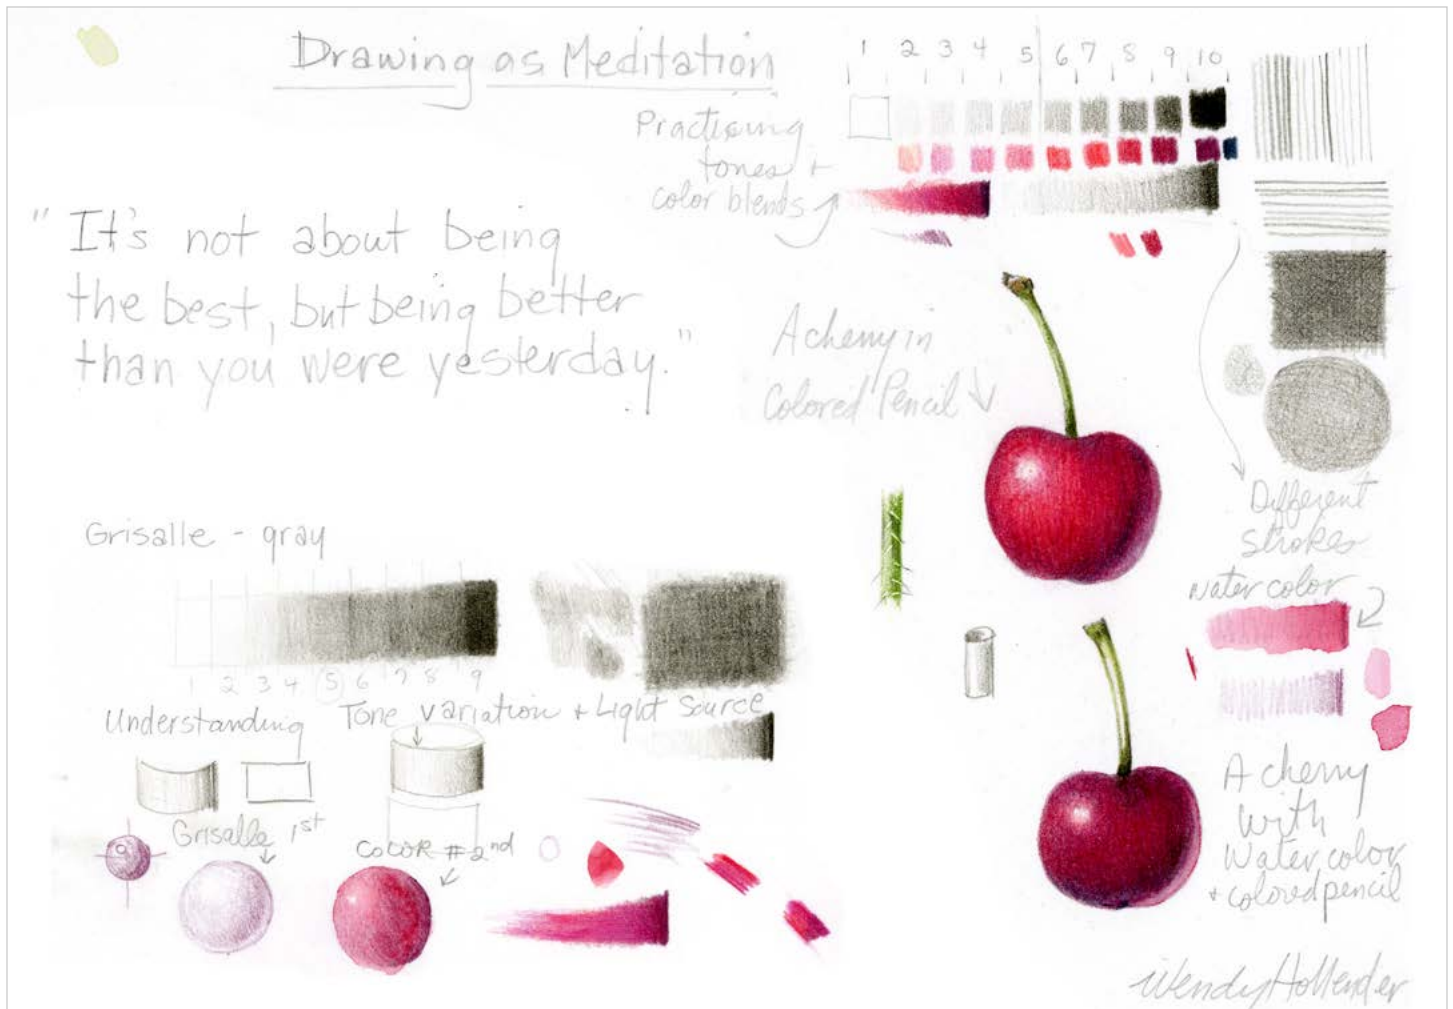 Drawing as Meditation
1 2 3 4 5 6 7 8 9 10
Practicing
tones +
color blends
"It's not about being
the best, but being better
than you were yesterday."
A cherry in
Colored Pencil
Different
strokes
Grisalle - gray
1 2 3 4 5 6 7 8 9
Understanding Tone variation + Light Source
Grisalle 1st
COLOR #2nd
Water color
A cherry
with
Water color
+ colored pencil
Wendy Hollender